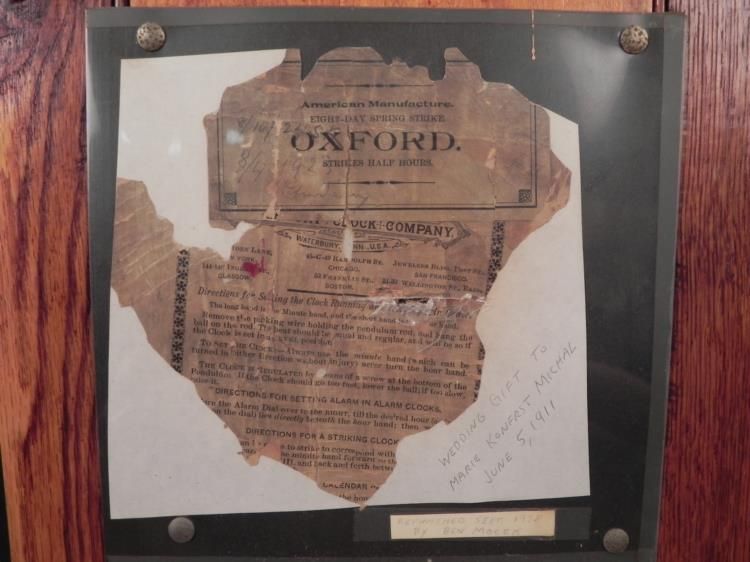 American Manufacture.
EIGHT-DAY SPRING STRIKE
OXFORD.
STRIKES HALF HOURS.
CLOCK COMPANY,
WATERBURY, CONN., U.S.A.
45-47-49 RANDOLPH ST. JEWELERS BLDG. POST ST.,
CHICAGO. SAN FRANCISCO.
GLASGOW. 52 FRANKLIN ST.,
BOSTON.
Directions for Setting the Clock Running
The long hand is the Minute hand, and the short hand hand.
Remove the packing wire holding the pendulum rod, and hang the
ball on the rod. The beat should be equal and regular, and will be so if
the Clock is set in a level position
TO SET THE CLOCK—Always use the minute hand (which can be
turned in either direction without injury) never turn the hour hand.
THE CLOCK IS REGULATED by means of a screw at the bottom of the
Pendulum. If the Clock should go too fast, lower the ball; if too slow,
raise it.
DIRECTIONS FOR SETTING ALARM IN ALARM CLOCKS.
Turn the Alarm Dial over to the RIGHT, till the desired hour
on the dial) lies directly beneath the hour hand; then
DIRECTIONS FOR A STRIKING CLOCK
to strike to correspond with
the minute hand forward to
III, and back and forth between
CALENDAR
the hou
WEDDING GIFT TO
MARIE KONFRST MICHAL
JUNE 5, 1911
REFINISHED SEPT.
BY BEN